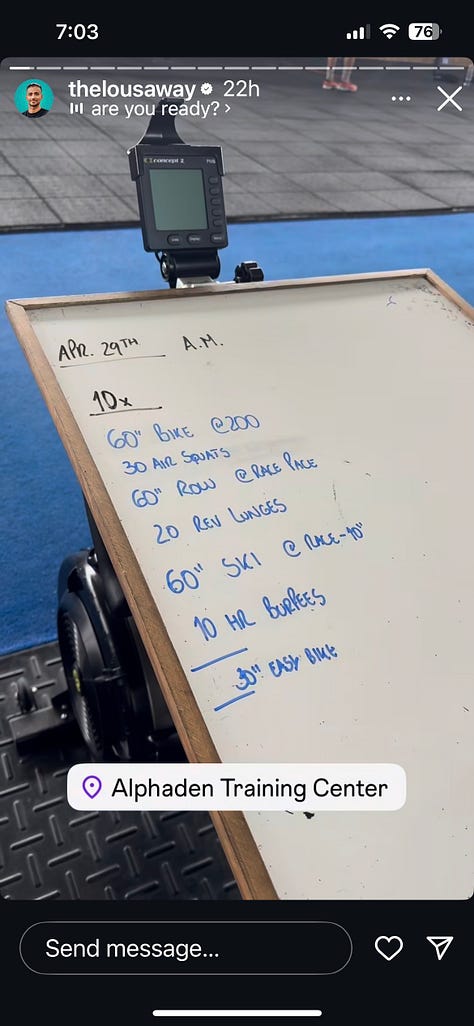 7:03
76
thelousaway 22h
are you ready? >
concept 2
PM5
APR. 29TH A.M.
10x
60" BIKE @200
30 AIR SQUATS
60" ROW @ RACE PACE
20 REV LUNGES
60" SKI @ RACE-10"
10 HR BURPEES
30" EASY BIKE
Alphaden Training Center
Send message...